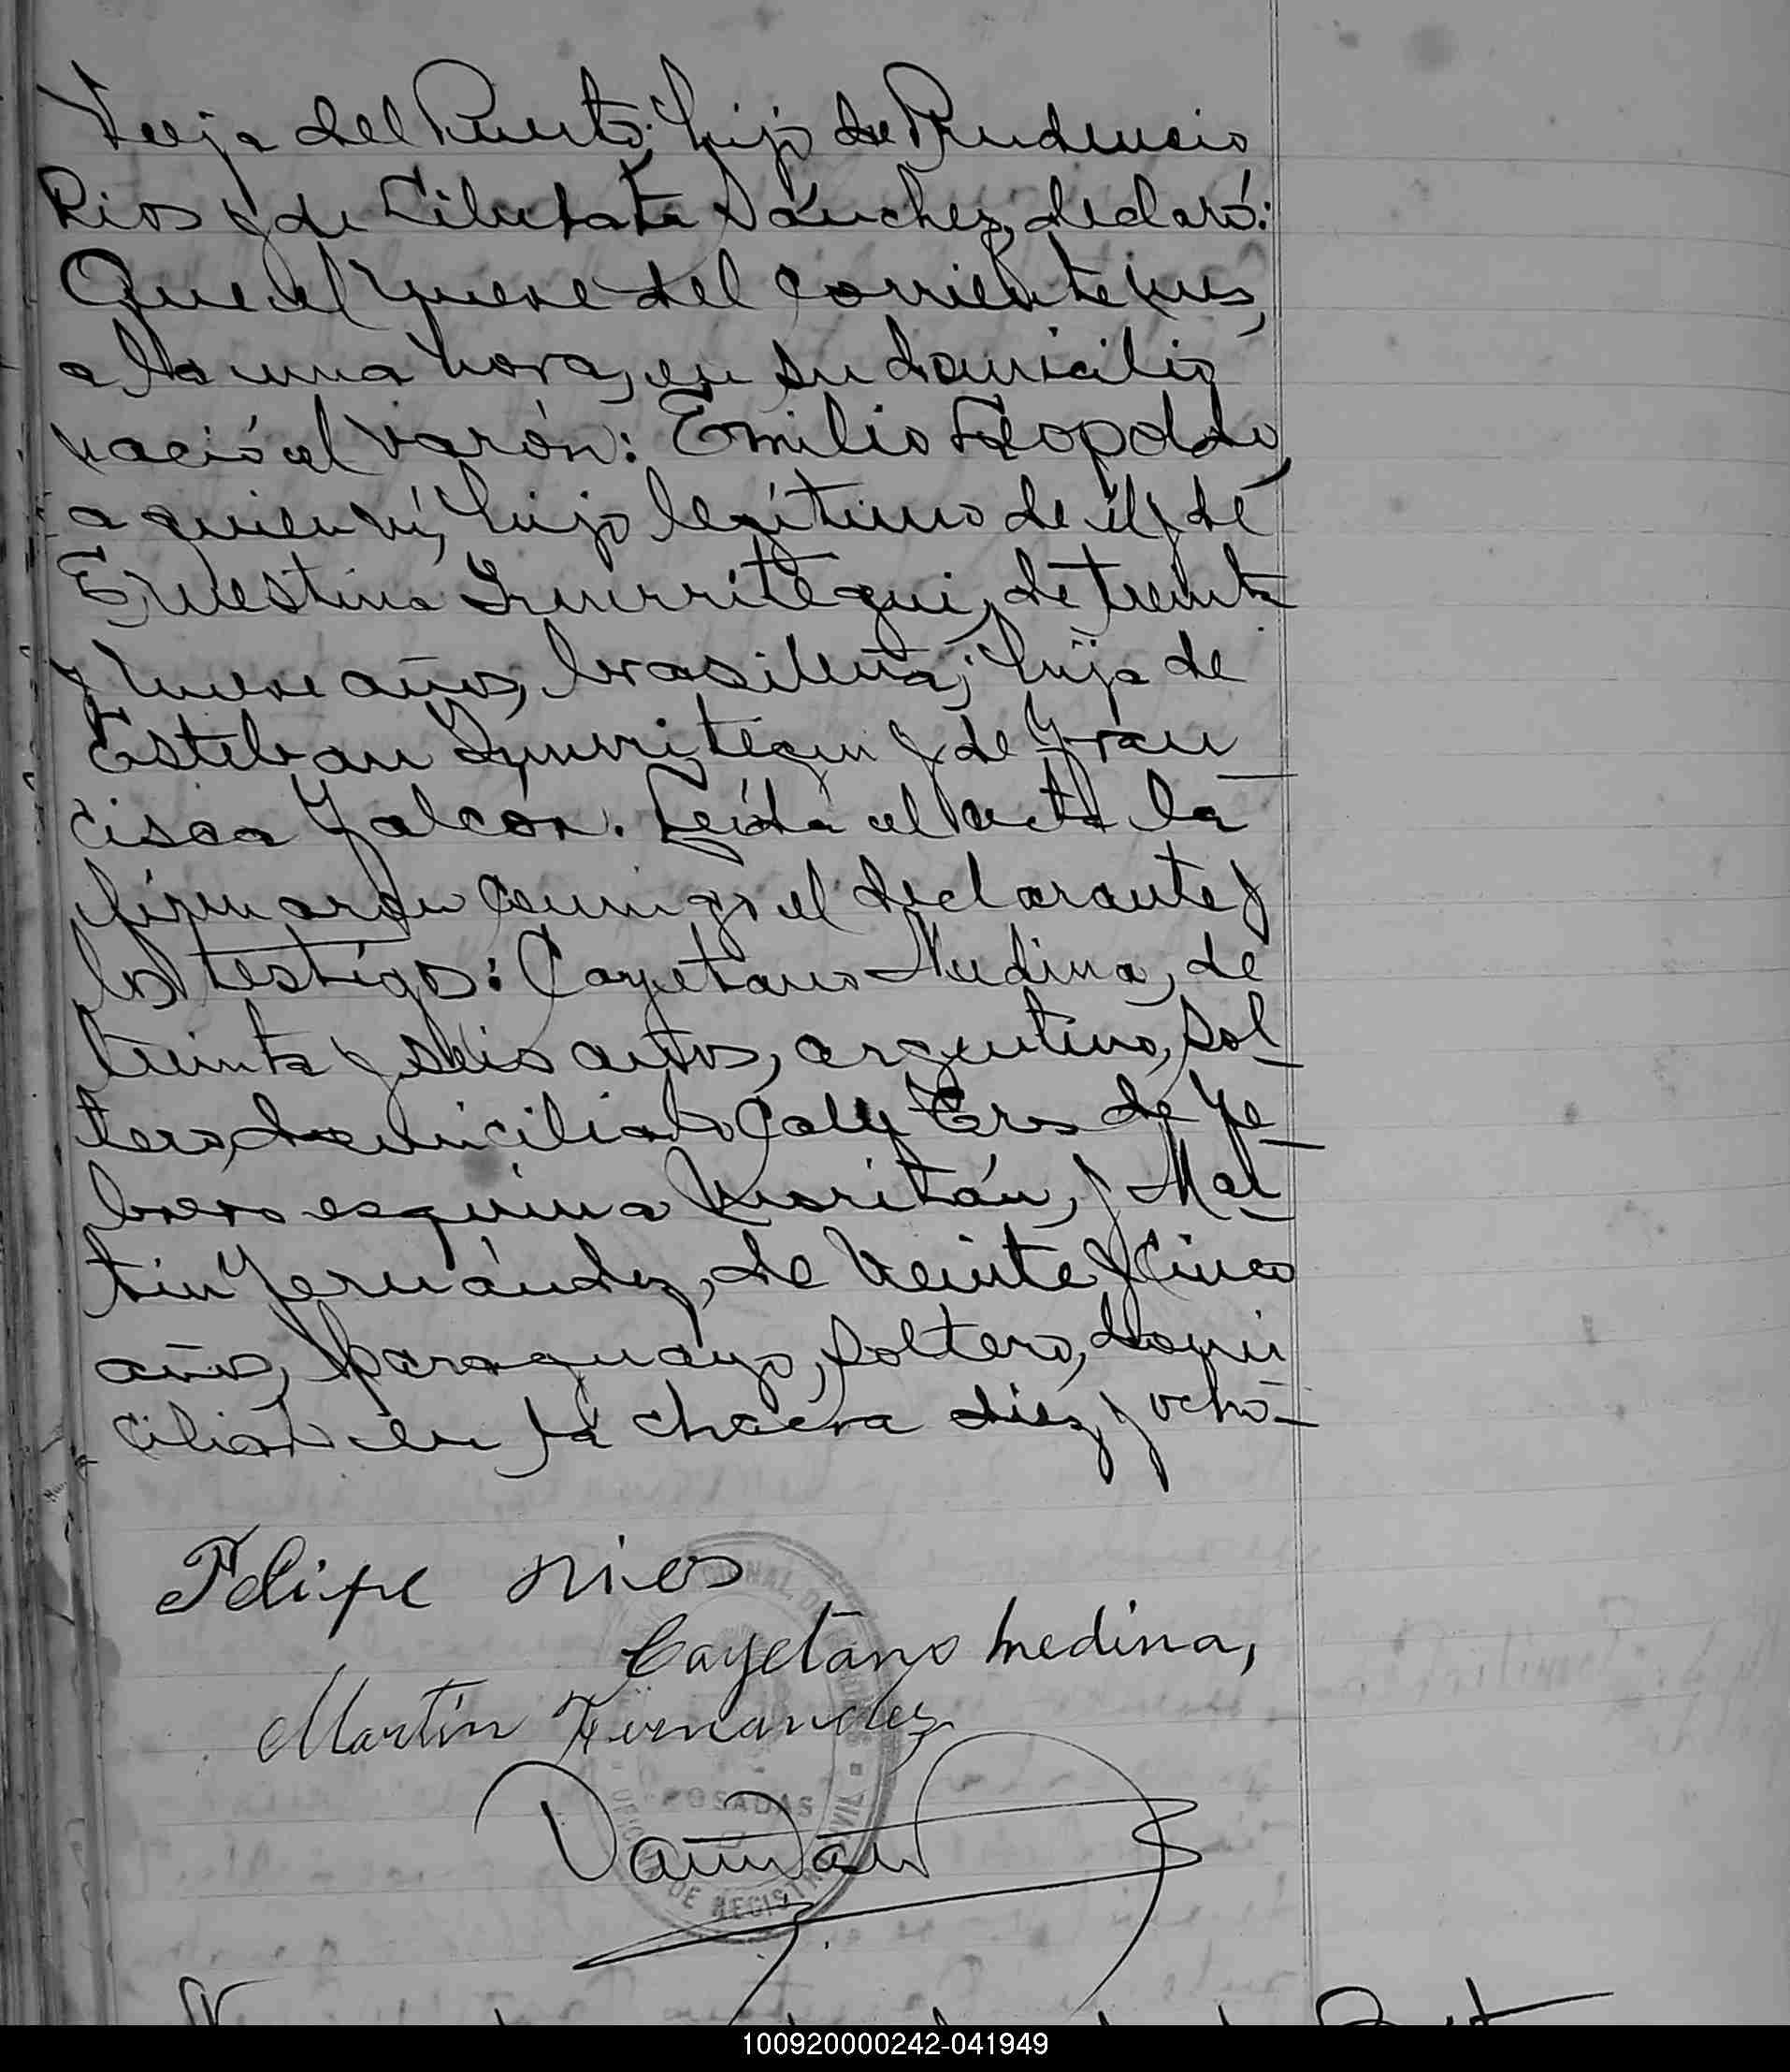 Vieja del Puerto; hijo de Prudencio
Rios y de Sánchez, declaró:
Que el nueve del corriente mes,
a la una hora, en su domicilio
nació el varón: Emilio Leopoldo,
a quien vi, hijo legítimo de él y de
Ernestina Irurritegui, de treinta
y nueve años, brasileña; hija de
Esteban y de Fran
cisca Falcón. Leída el acta la
firmaron conmigo el declarante y
los testigos: Cayetano Medina, de
treinta y seis años, argentino, sol-
tero, domiciliado Calle Tres de Fe-
brero esquina y Mar-
tin Fernández, de veinte y cinco
años, paraguayo, soltero, domi
ciliado en la chacra diez y ocho-
Felipe rios
Cayetano medina,
Martín Fernandez
POSADAS
DE REGISTRO CIVIL
100920000242-041949